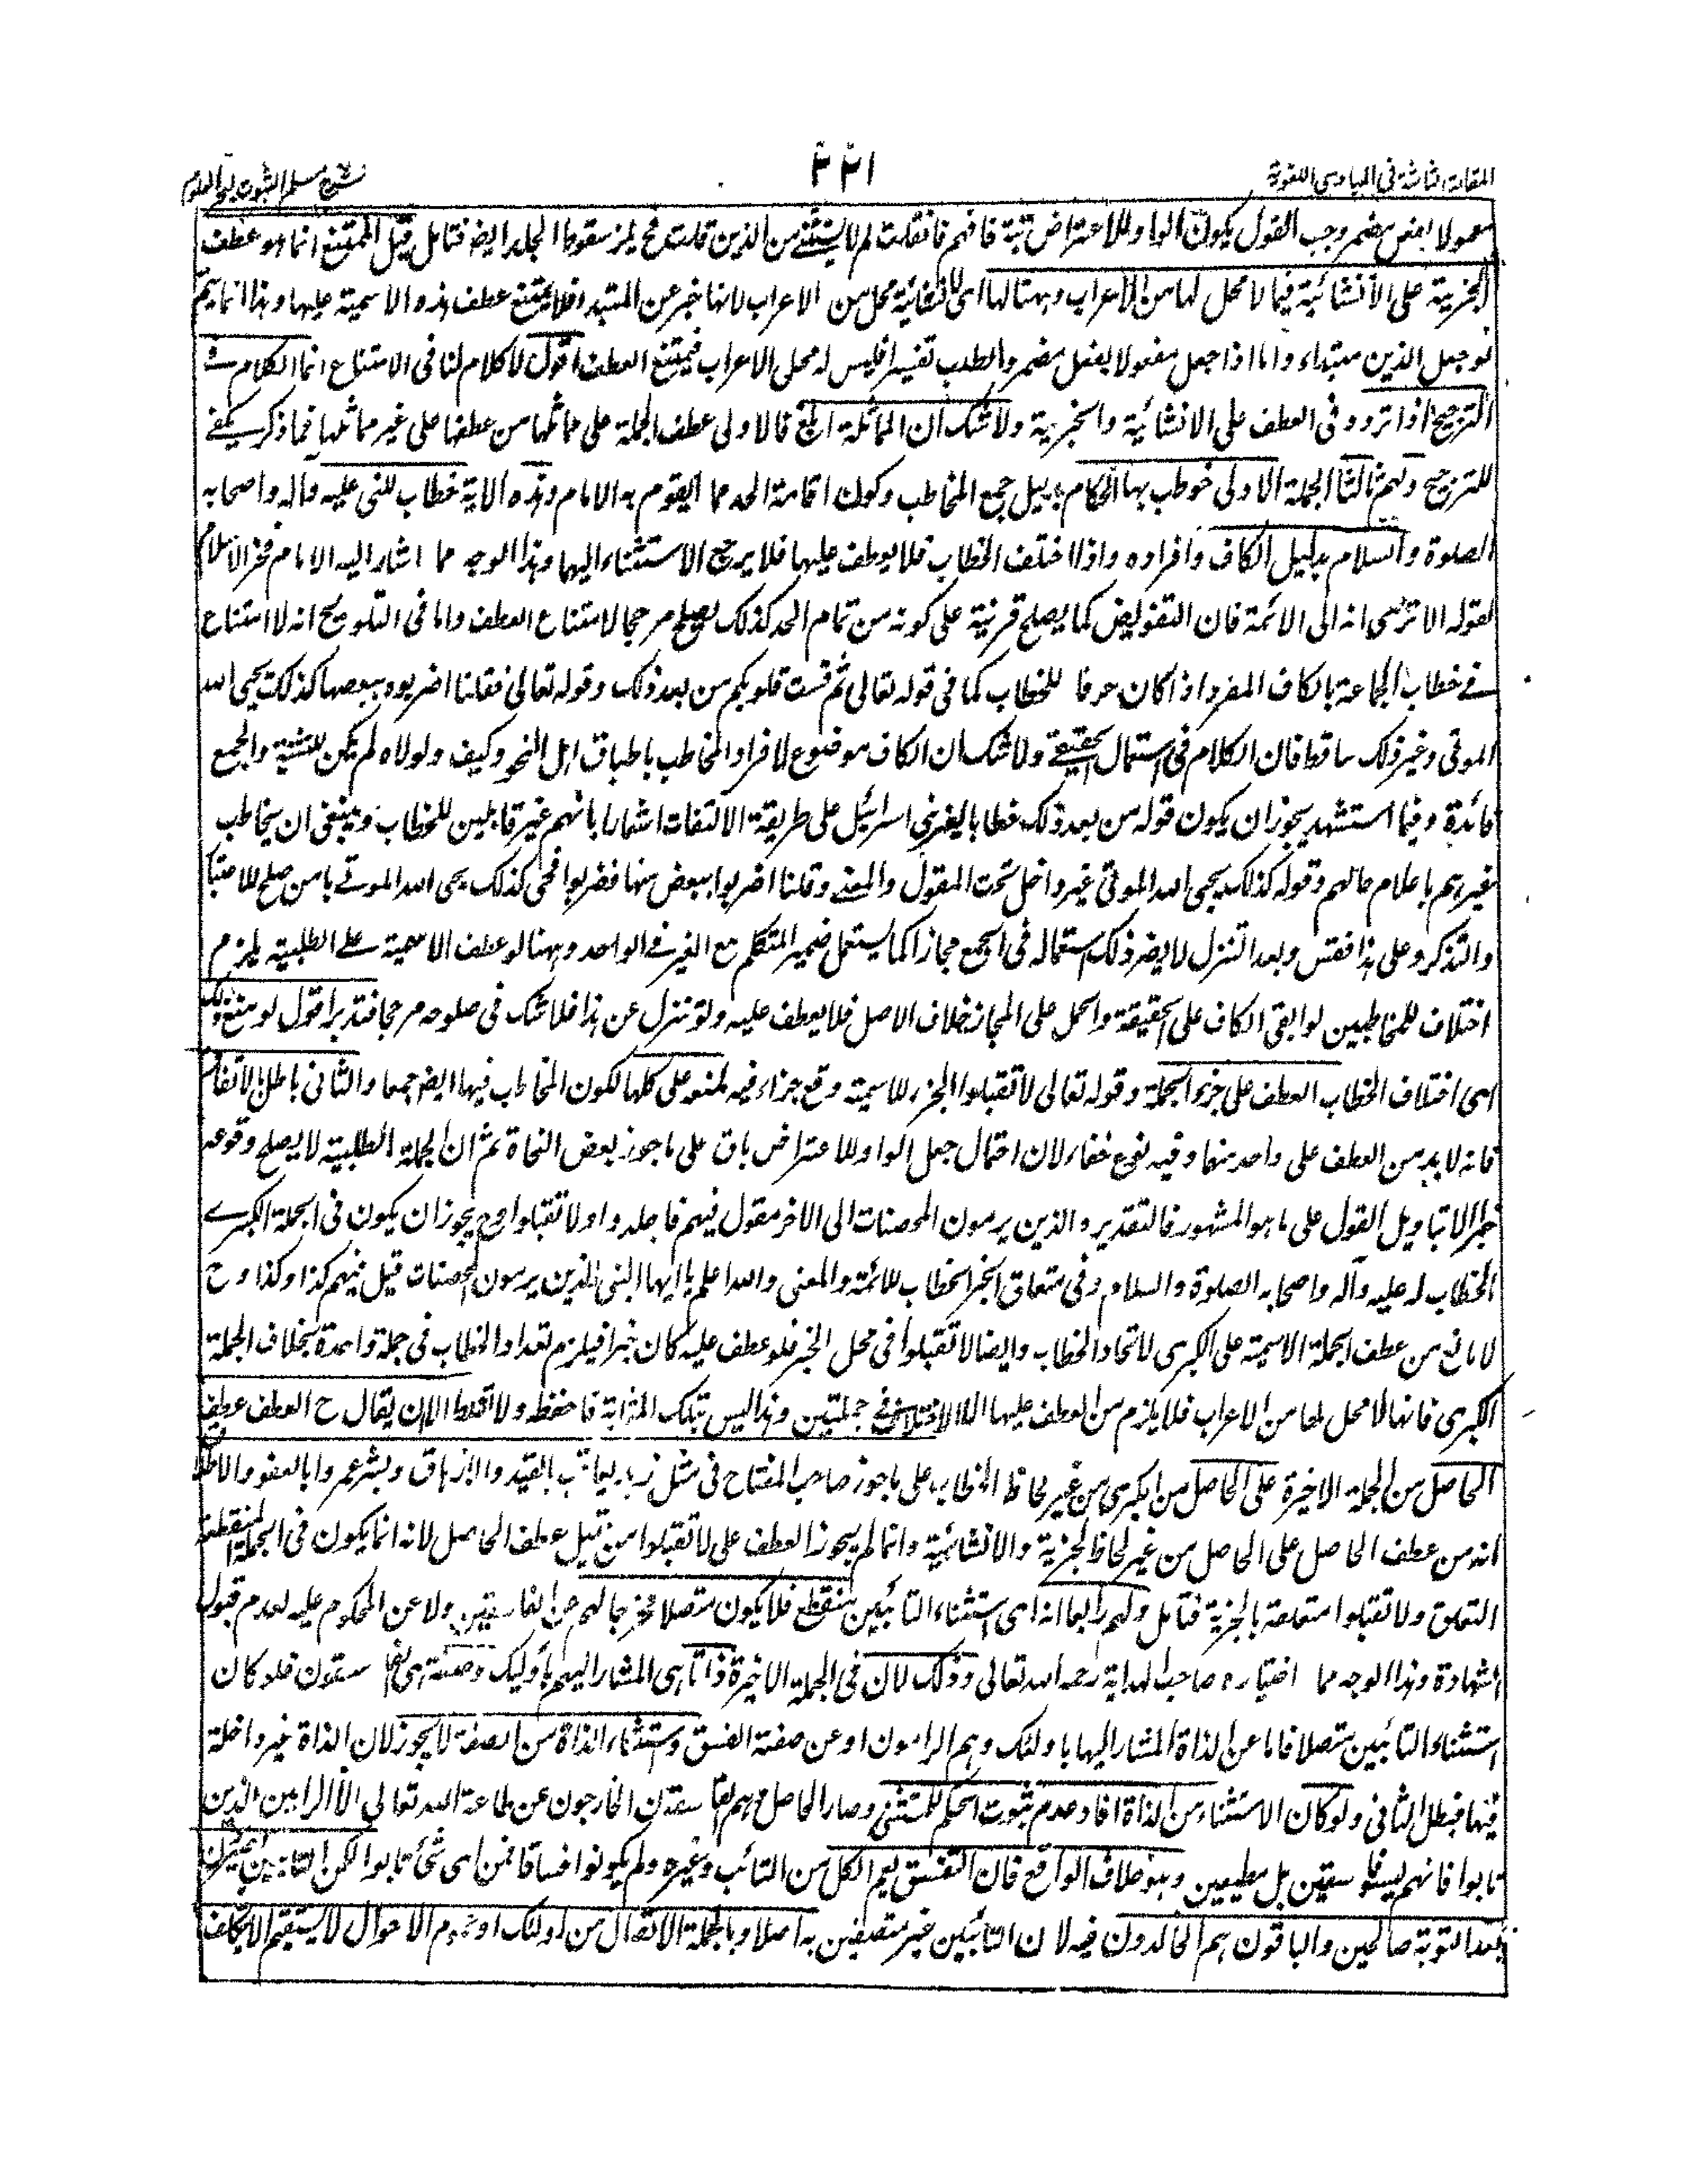 المقالة الثالثة فى المبادى اللغوية
٣٢١
شرح مسلم الثبوت لبحر العلوم
معمولا لفعل مضمر وجب القول بكون الواو للاعتراض البتة فافهم فان قلت لم لا يستثنى من الذين قلت فح يلزم سقوط الجلد ايضا فتامل قيل الممتنع انما هو عطف
الخبرية على الانشائية فيما لا محل لها من الاعراب وههنا لها اى للانشائية محل من الاعراب لانها خبر عن المبتدء فلا يمتنع عطف هذه الاسمية عليها وهذا انما يتم
لو جعل الذين مبتداء واما اذا جعل مفعولا بفعل مضمر والطلب تفسيرا فليس له محل الاعراب فيمتنع العطف اقول لا كلام لنا فى الامتناع انما الكلام فى
الترجيح اذا تردد فى العطف على الانشائية والخبرية ولا شك ان المماثلة ارجح فالاولى عطف الجملة على مماثلها من عطفها على غير مماثلها فما ذكر يكفى
للترجيح ولهم ثالثا الجملة الاولى خوطب بها الحكام بدليل جمع المخاطب وكون اقامة الحد مما يقوم به الامام وهذه الاية خطاب للنبى عليه وآله واصحابه
الصلوة والسلام بدليل الكاف وافراده واذا اختلف الخطاب فلا يعطف عليها فلا يرجع الاستثناء اليها وهذا الوجه مما اشار اليه الامام فخر الاسلام
لقوله الا ترى انه الى الائمة فان التفويض كما يصلح قرينة على كونه من تمام الحد كذلك يصلح مرجحا لامتناع العطف واما فى التلويح انه لا امتناع
فى خطاب الجماعة بالكاف المفرد اذا كان حرفا للخطاب كما فى قوله تعالى ثم قست قلوبكم من بعد ذلك وقوله تعالى فقلنا اضربوه ببعضها كذلك يحيى الله
الموتى وغير ذلك ساقط فان الكلام فى استعمال الحقيقى ولا شك ان الكاف موضوع لافراد المخاطب باطباق اهل النحو وكيف ولولاه لم يكن للتثنية والجمع
فائدة وفيما استشهد يجوز ان يكون قوله من بعد ذلك خطابا لغير بنى اسرائيل على طريقة الالتفات اشعارا بانهم غير قابلين للخطاب وينبغى ان يخاطب
غيرهم باعلام حالهم وقوله كذلك يحيى الله الموتى غير داخل تحت المقول والمعنى وقلنا اضربوا ببعض منها فضربوا فحى كذلك يحيى الله الموتى يا من صلح للاعتبار
والتذكر وعلى هذا فقس وبعد التنزل لا يضر ذلك استعماله فى الجمع مجازا كما يستعمل ضمير المتكلم مع الغير فى الواحد وههنا لو عطف الاسمية على الطلبية يلزم
اختلاف للمخاطبين لو ابقى الكاف على الحقيقة والحمل على المجاز خلاف الاصل فلا يعطف عليه ولو تنزل عن هذا فلا شك فى صلوحه مرجحا فتدبر اقول لو منع ذلك
اى اختلاف الخطاب العطف على جزء الجملة وقوله تعالى لا تقبلوا الجزء للاسمية وقع جزاء فيه لمنع على كلها لكون المخاطب فيها ايضا جمعا والثانى باطل بالاتفاق
فانه لا بد من العطف على واحد منهما وفيه نوع خفاء لان احتمال جعل الواو للاعتراض باق على ما جوز بعض النحاة ثم ان الجملة الطلبية لا يصلح وقوعه
خبرا الا بتاويل القول على ما هو المشهور فالتقدير والذين يرمون المحصنات الى الاخر مقول فيهم فاجلدوا ولا تقبلوا وح يجوز ان يكون فى الجملة الكبرى
الخطاب له عليه وآله واصحابه الصلوة والسلام وفى متعلق الخبر الخطاب للائمة والمعنى والله اعلم يا ايها النبى الذين يرمون المحصنات قيل فيهم كذا وكذا وح
لا مانع من عطف الجملة الاسمية على الكبرى لاتحاد الخطاب وايضا لا تقبلوا فى محل الخبر فلو عطف عليه كان خبرا فيلزم تعداد الخطاب فى جملة واحدة بخلاف الجملة
الكبرى فانها لا محل لها من الاعراب فلا يلزم من العطف عليها الا الاختلاف فى جملتين وهذا ليس بتلك المثابة فاحفظه ولا تغلط الا ان يقال ح العطف عطف
الحاصل من الجملة الاخيرة على الحاصل من الكبرى من غير لحاظ الخطاب على ما جوز صاحب المفتاح فى مثل زيد يعاقب بالقيد والازهاق وبشر عمروا بالعفو والاطلاق
انه من عطف الحاصل على الحاصل من غير لحاظ الخبرية والانشائية وانما لم يجوز العطف على لا تقبلوا من قبيل عطف الحاصل لانه انما يكون فى الجملة المنقطعة
التعلق ولا تقبلوا متعلقة بالخبرية فتامل ولهم رابعا انه اى استثناء التائبين منقطع فلا يكون متصلا مخرجا لهم عن الفاسقين ولا عن المحكوم عليه لعدم قبول
الشهادة وهذا الوجه مما اختياره صاحب الهداية رحمه الله تعالى وذلك لان فى الجملة الاخيرة ذاتا هى المشار اليهم باولئك وصفة هى الفاسقون فلو كان
استثناء التائبين متصلا فاما عن الذاة المشار اليها باولئك وهم الرامون او عن صفة الفسق واستثناء الذاة من الصفة لا يجوز لان الذاة غير داخلة
فيها فبطل الثانى ولو كان الاستثناء من الذاة افاد عدم ثبوت الحكم للمستثنى وصار الحاصل هم الفاسقون الخارجون عن طاعة الله تعالى الا الرامين الذين
تابوا فانهم ليسوا فاسقين بل مطيعين وهو خلاف الواقع فان التفسق يعم الكل من التائب وغيره ولم يكونوا فساقا فمن اى شئ تابوا لكن التائبين يصيرون
بعد التوبة صالحين والباقون هم الخالدون فيه لان التائبين غير متصفين به اصلا وبالجملة الاتصال من اولئك او عموم الاحوال لا يستقيم الا بتكلف